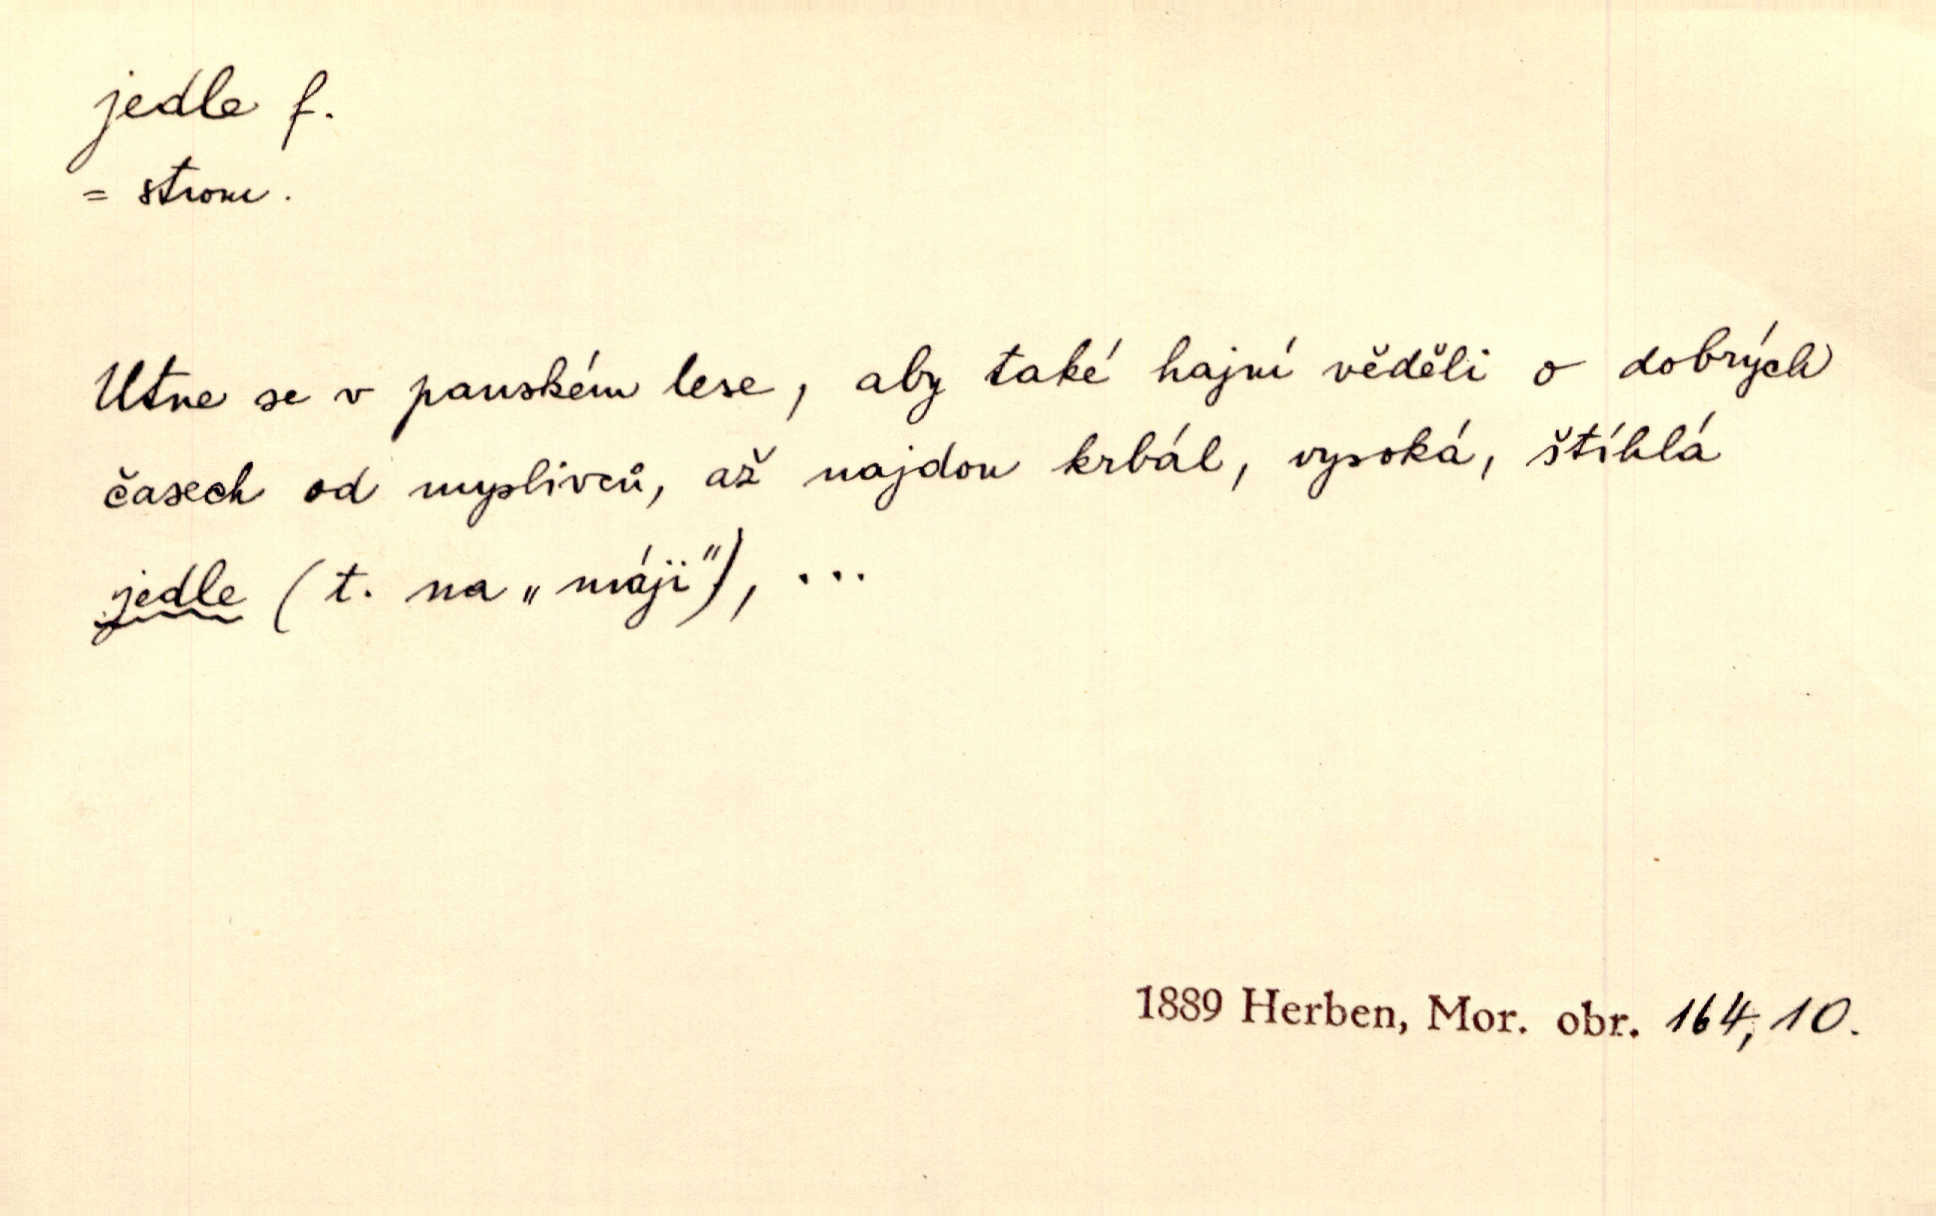 jedle f.
= strom.
Utne se v panském lese, aby také hajní věděli o dobrých
časech od myslivců, až najdou krbál, vysoká, štíhlá
jedle (t. na „máji"), ...
1889 Herben, Mor. obr. 164,10.